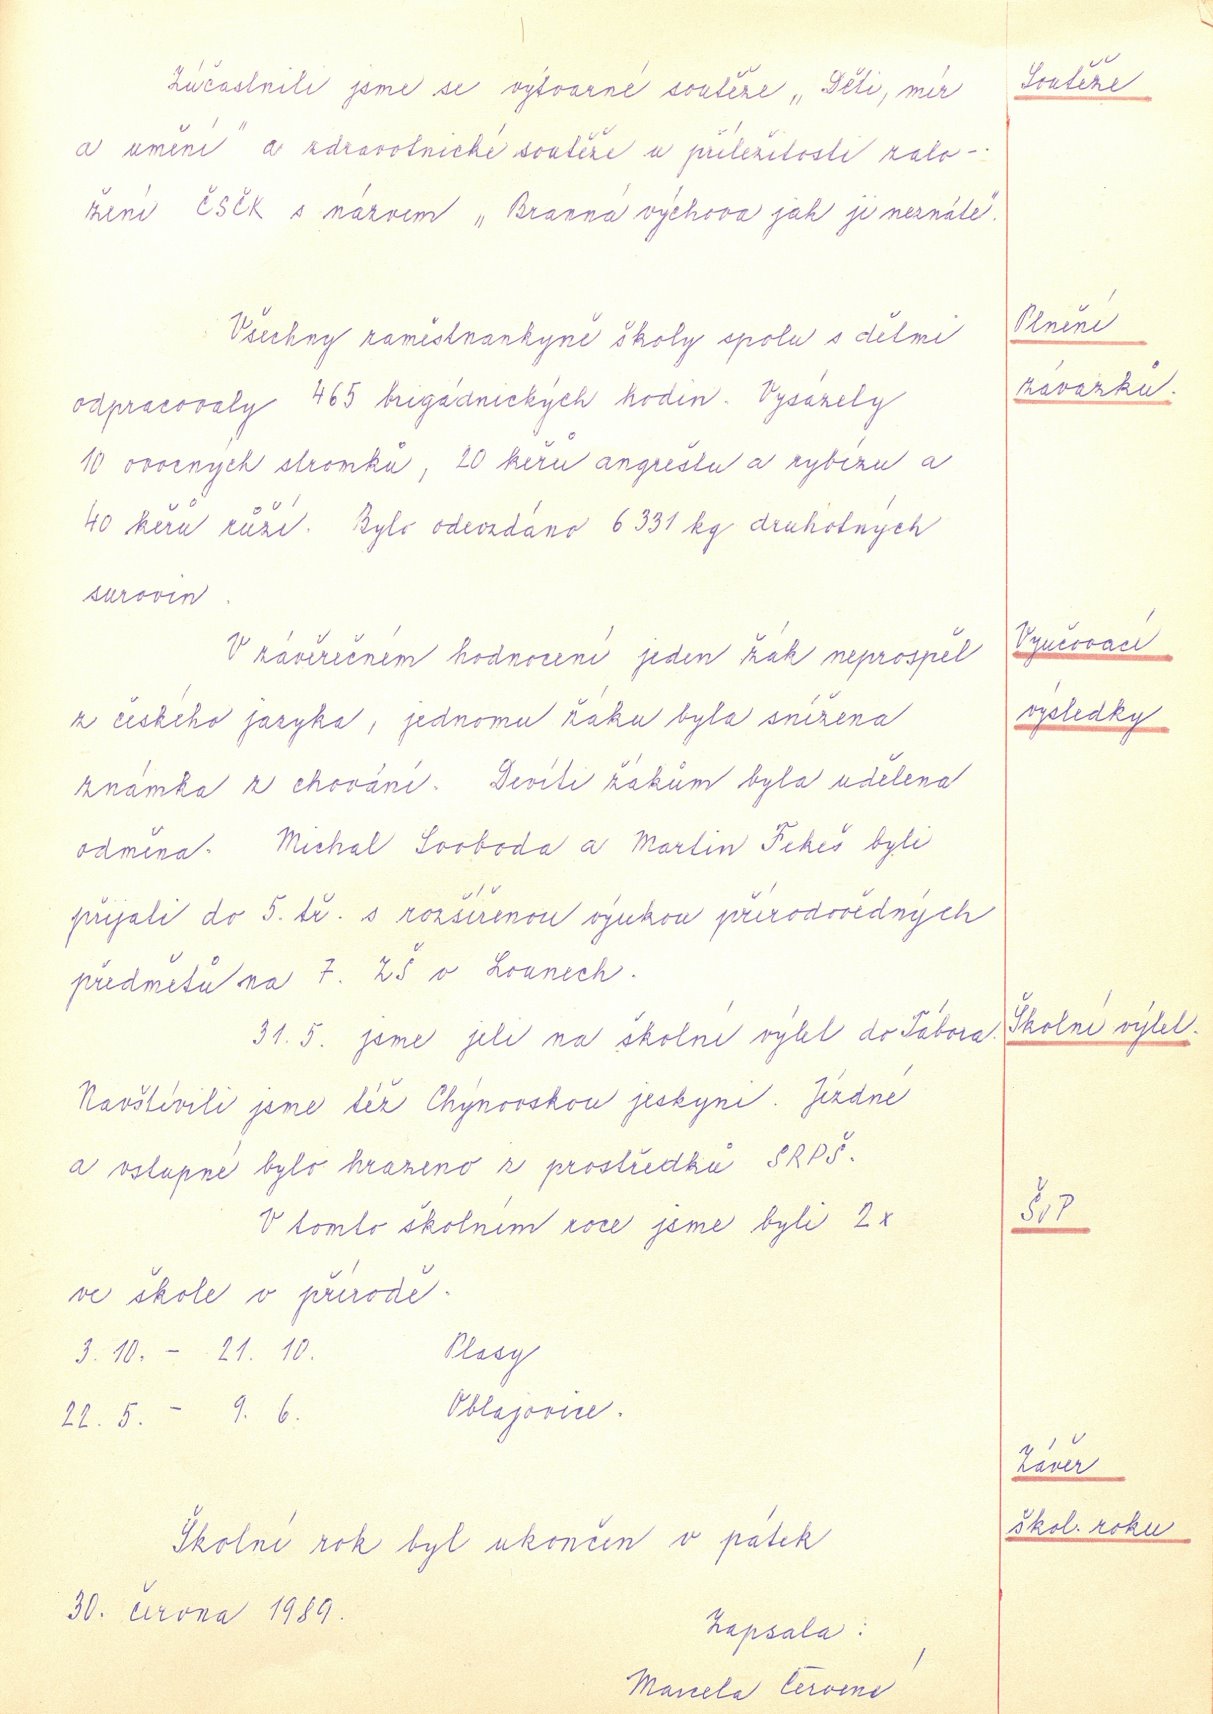 Zúčastnili jsme se výtvarné soutěže „Děti, mír
Soutěže
a umění" a zdravotnické soutěže u příležitosti zalo-
žení ČSČK s názvem „Branná výchova jak ji neznáte".
Všechny zaměstnankyně školy spolu s dětmi
Plnění
odpracovaly 465 brigádnických hodin. Vysázely
závazků.
10 ovocných stromků, 20 keřů angreštu a rybízu a
40 keřů růží. Bylo odevzdáno 6 331 kg druhotných
surovin.
V závěrečném hodnocení jeden žák neprospěl
Vyučovací
z českého jazyka, jednomu žáku byla snížena
výsledky
známka z chování. Devíti žákům byla udělena
odměna. Michal Svoboda a Martin Fekeš byli
přijati do 5. tř. s rozšířenou výukou přírodovědných
předmětů na 7. ZŠ v Lounech.
31. 5. jsme jeli na školní výlet do Tábora.
Školní výlet.
Navštívili jsme též Chýnovskou jeskyni. Jízdné
a vstupné bylo hrazeno z prostředků SRPŠ.
V tomto školním roce jsme byli 2x
ŠvP
ve škole v přírodě.
3. 10. - 21. 10. Plasy
22. 5. - 9. 6. Oblajovice.
Závěr
škol. roku
Školní rok byl ukončen v pátek
30. června 1989.
Zapsala:
Marcela Červená